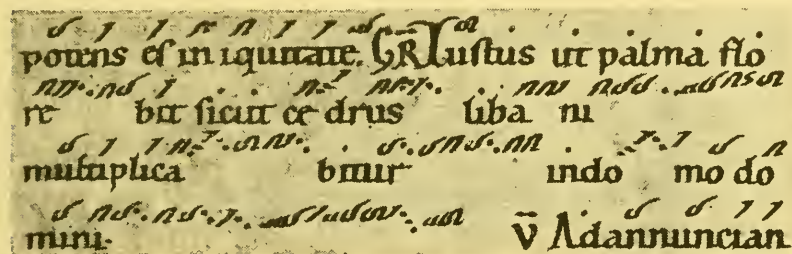 potens es in iquitate. GR Iustus ut palma flo
re bit sicut ce drus liba ni
multiplica bitur indo mo do
mini. V̄ Ad annuncian